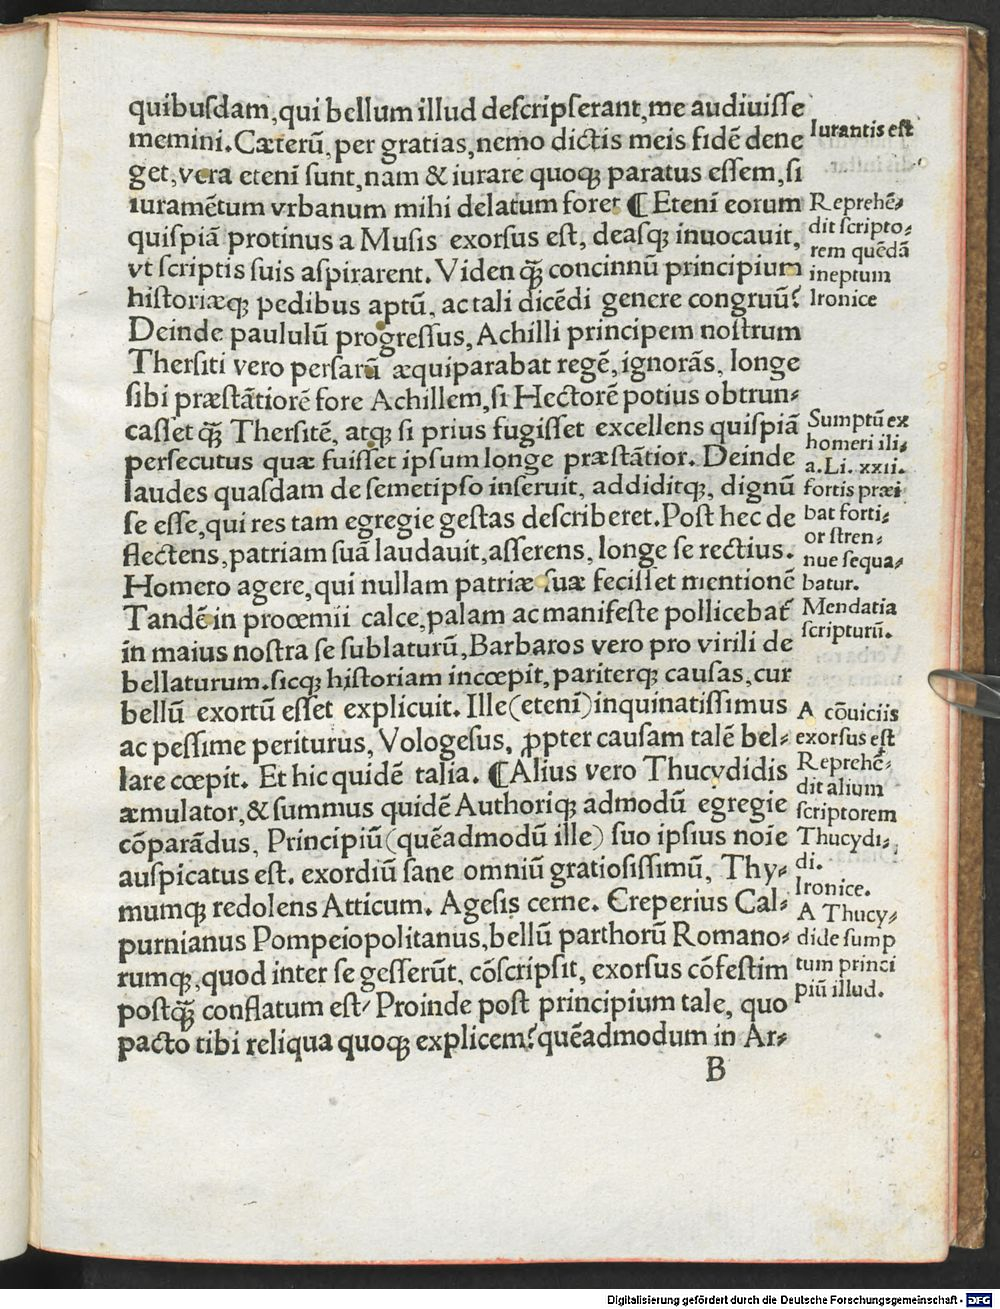 quibusdam,qui bellum illud descripserant,me audiuisse
memini.Cæterū,per gratias,nemo dictis meis fidē dene
get,vera etenī sunt,nam & iurare quoqꝫ paratus essem,si
iuramētum vrbanum mihi delatum foret ¶ Etenī eorum
quispiā protinus a Musis exorsus est, deasqꝫ inuocauit,
vt scriptis suis aspirarent. Viden qꝫ̄ concinnū principium
historiæqꝫ pedibus aptū, ac tali dicēdi genere congruū?
Deinde paululū progressus, Achilli principem nostrum
Thersiti vero persarū æquiparabat regē, ignorās, longe
sibi præstātiorē fore Achillem,si Hectorē potius obtrun⸗
casset qꝫ̄ Thersitē, atqꝫ si prius fugisset excellens quispiā
persecutus quæ fuisset ipsum longe præstātior. Deinde
laudes quasdam de semetipso inseruit, addiditqꝫ, dignū
se esse,qui res tam egregie gestas describeret.Post hec de
flectens,patriam suā laudauit,asserens, longe se rectius.
Homero agere,qui nullam patriæ suæ fecisset mentionē
Tandē in prooemii calce,palam ac manifeste pollicebat̄
in maius nostra se sublaturū,Barbaros vero pro virili de
bellaturum.sicqꝫ historiam incœpit,pariterqꝫ causas,cur
bellū exortū esset explicuit. Ille(etenī)inquinatissimus
ac pessime periturus, Vologesus, ꝓpter causam talē bel⸗
lare cœpit. Et hic quidē talia. ¶Alius vero Thucydidis
æmulator,& summus quidē Authoriqꝫ admodū egregie
cōparādus, Principiū(quēadmodū ille) suo ipsius noīe
auspicatus est. exordiū sane omniū gratiosissimū, Thy⸗
mumqꝫ redolens Atticum. Agesis cerne. Creperius Cal⸗
purnianus Pompeiopolitanus,bellū parthorū Romano⸗
rumqꝫ,quod inter se gesserūt, cōscripsit, exorsus cōfestim
postqꝫ̄ conflatum est/ Proinde post principium tale, quo
pacto tibi reliqua quoqꝫ explicem?quēadmodum in Ar⸗
B
Iurantis est
Reprehē⸗
dit scripto⸗
rem quēdā
ineptum
Ironice
Sumptū ex
homeri ili⸗
a.Li. xxii.
fortis præi
bat forti⸗
or stren⸗
nue sequa⸗
batur.
Mendatia
scripturū.
A cōuiciis
exorsus est
Reprehē⸗
dit alium
scriptorem
Thucydi⸗
di.
Ironice.
A Thucy⸗
dide sump
tum princi
piū illud.
Digitalisierung gefördert durch die Deutsche Forschungsgemeinschaft - DFG